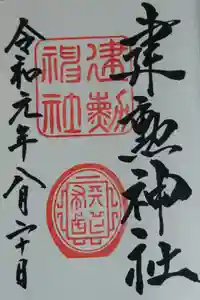 建勲神社
建勲
神社
令和元年八月二十日